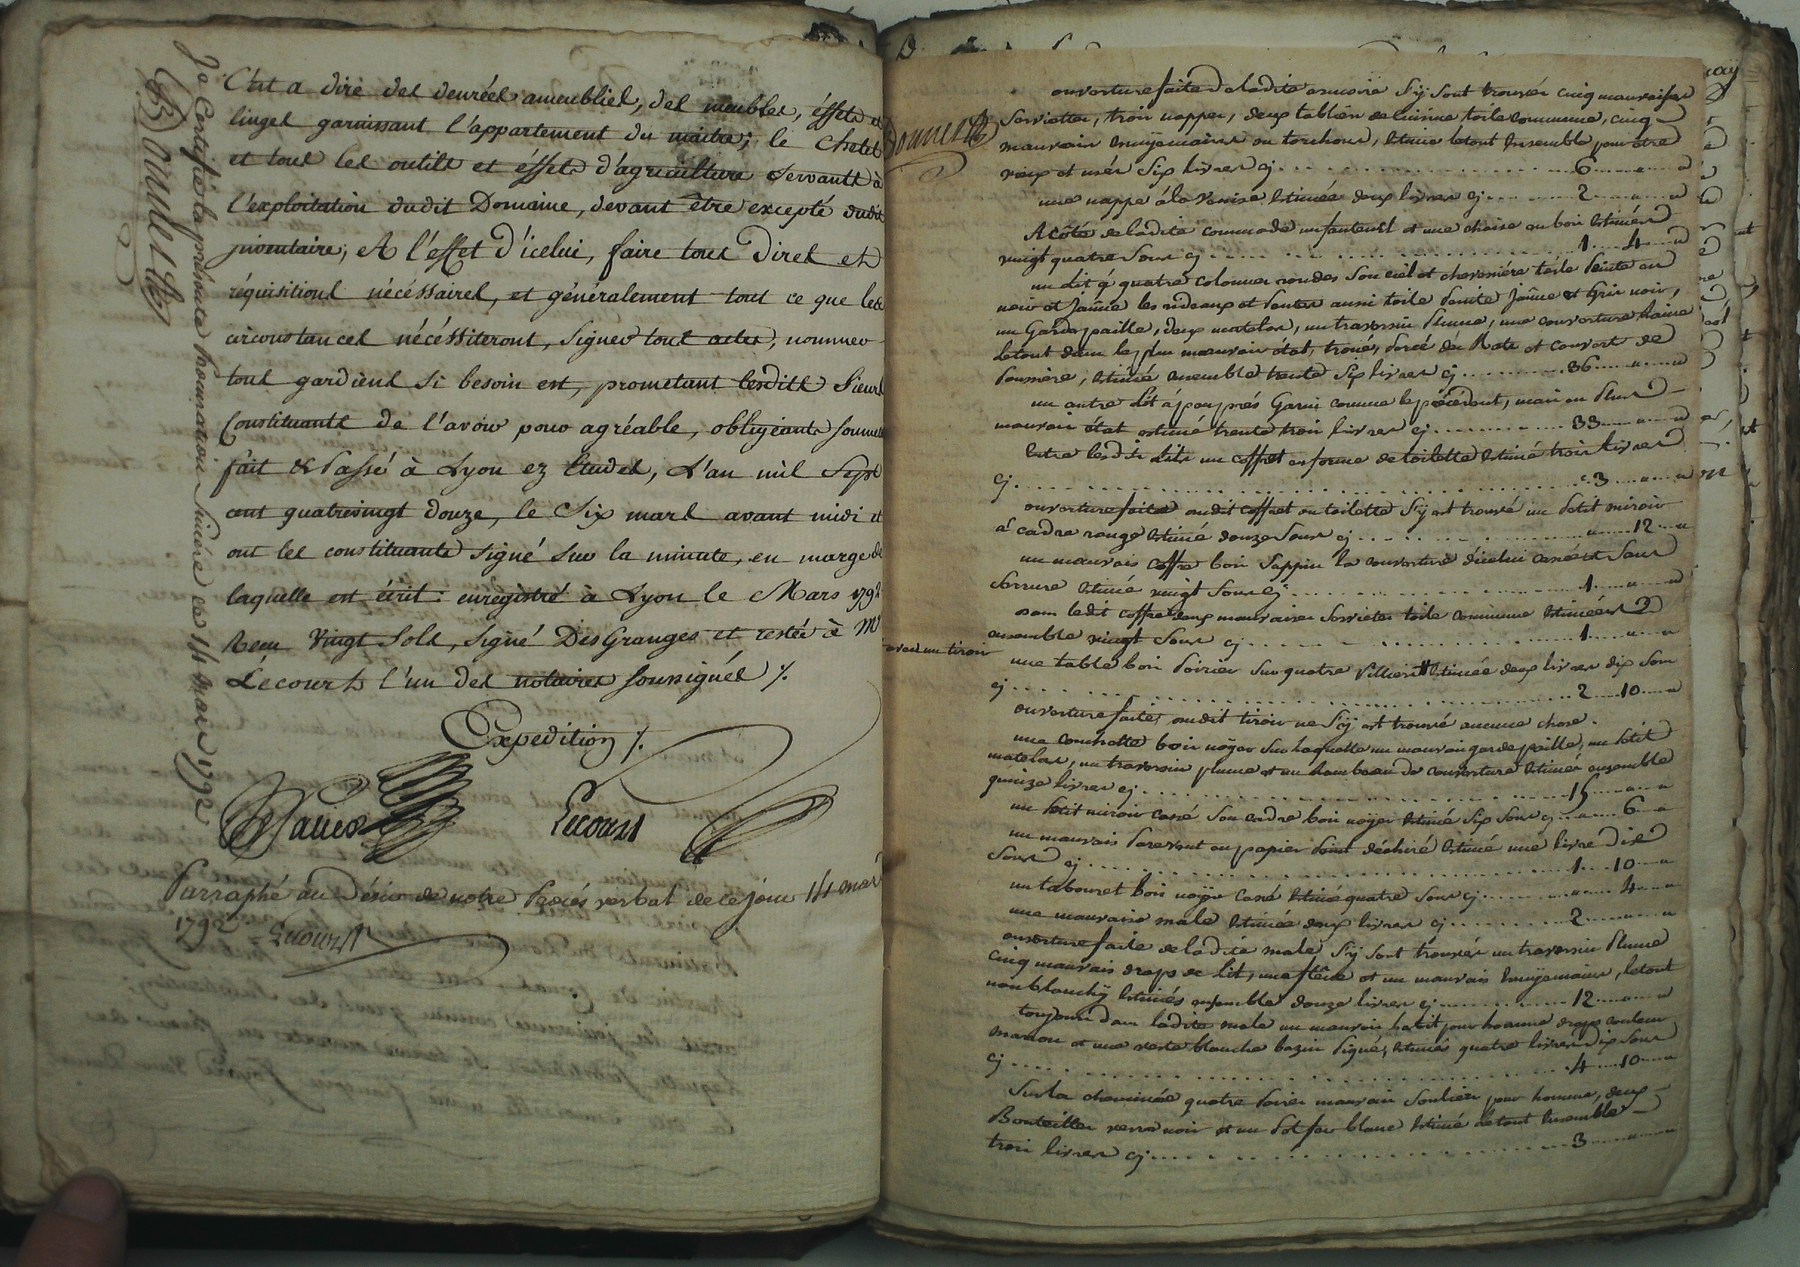 C'est a dire des denrées ameublies, des meubles, éffets et
linges garnissant l'appartement du maitre; le Chetel
et tous les outils et éffets d'agriculture servants à
l'exploitation dudit Domaine, devant être excepté dudit
jnventaire, A l'effet d'icelui, faire tous Dires et
réquisitions nécéssaires, et généralement tout ce que les
circonstances nécéssiteront, signer tous actes, nommer
tous gardiens si besoin est, prometant lesdits Sieurs
Constituants de l'avoir pour agréable, obligeants
fait & Passé à Lyon ez Etudes, L'an mil Sept
cent quatrevingt douze, le Six mars avant midi et
ont les constituants signé sur la minute, en marge de
laquelle est écrit: enregistré à Lyon le Mars 1792
Reçu Vingt Sols, signé DesGranges et restée à Me
Lécourt l'un des notaires soussignés /.
Expedition /.
Lecourt
Parraphé au Désir de notre Procés verbal de ce jour 14 mars
1792 Lecourt
Je Certifie la présente procuration sincère ce 14 mars 1792
ouverture faite de ladite armoire s'y sont trouvés cinq mauvaises
Serviettes, trois nappes, deux tabliers de cuisine toile commune, cinq
mauvais essuyemains ou torchons, Estimé letout Ensemble pour être
vieux et usés Six livres cj 6
une nappe à la Venise Estimée deux livres cj 2
A côté de ladite commode un fauteuil et une chaise en bois Estimés
vingt quatre Sous cj 1 4
un lit à quatre colonnes rondes son ciel et toile Peinte en
noir et Jaûne les rideaux et Pentes aussi toile Peinte Jaûne et gris noir,
un Gardepaille, deux matelas, un traversin Plume, une couverture laine
letout dans le plus mauvais état, troués, percé des Rats et couvert de
Poussière, Estimé ensemble trente Six livres cj 36
un autre Lit apeuprès Garni comme le précédent, mais en Plus
mauvais état estimé trente trois livres cj 33
Entre lesdits Lits un coffret en forme de toilette Estimé trois livres
cj 3
ouverture faite audit coffret ou toilette S'y est trouvé un Petit miroir
à cadre rouge Estimé douze Sous cj 12
un mauvais coffre bois Sappin la couverture d'icelui cassé et Sans
Serrure Estimé vingt Sous cj 1
dans ledit coffre deux mauvaises Serviettes toile commune Estimées
ensemble vingt Sous cj 1
avec un tiroir
une table bois Poirier sur quatre Pilliers Estimée deux livres dix Sous
cj 2 10
ouverture faite, audit tiroir ne S'y est trouvé aucune chose.
une couchette bois noyer sur laquelle un mauvais gardepaille, un Petit
matelas, un traversin plume et un lambeau de couverture Estimés ensemble
quinze livres cj 15
un Petit miroir cassé Son cadre bois noyer Estimé Six Sous cj 6
un mauvais Paravent en papier Peint déchiré Estimé une livre dix
Sous cj 1 10
un tabouret bois noyer cassé Estimé quatre Sous cj 4
une mauvaise male Estimée deux livres cj 2
ouverture faite de ladite male S'y sont trouvés un traversin Plume
cinq mauvais draps de lit, et un mauvais Essuyemains, letout
non blanchy Estimés ensemble douze livres cj 12
toujours dans ladite male un mauvais habit pour homme drap couleur
marron et une veste blanche bazin Piqué, Estimés quatre livres dix Sous
cj 4 10
Sur la cheminée quatre Paires mauvais Souliers pour homme, deux
Bouteilles verre noir et un Pot fer blanc Estimé letout Ensemble
trois livres cj 3